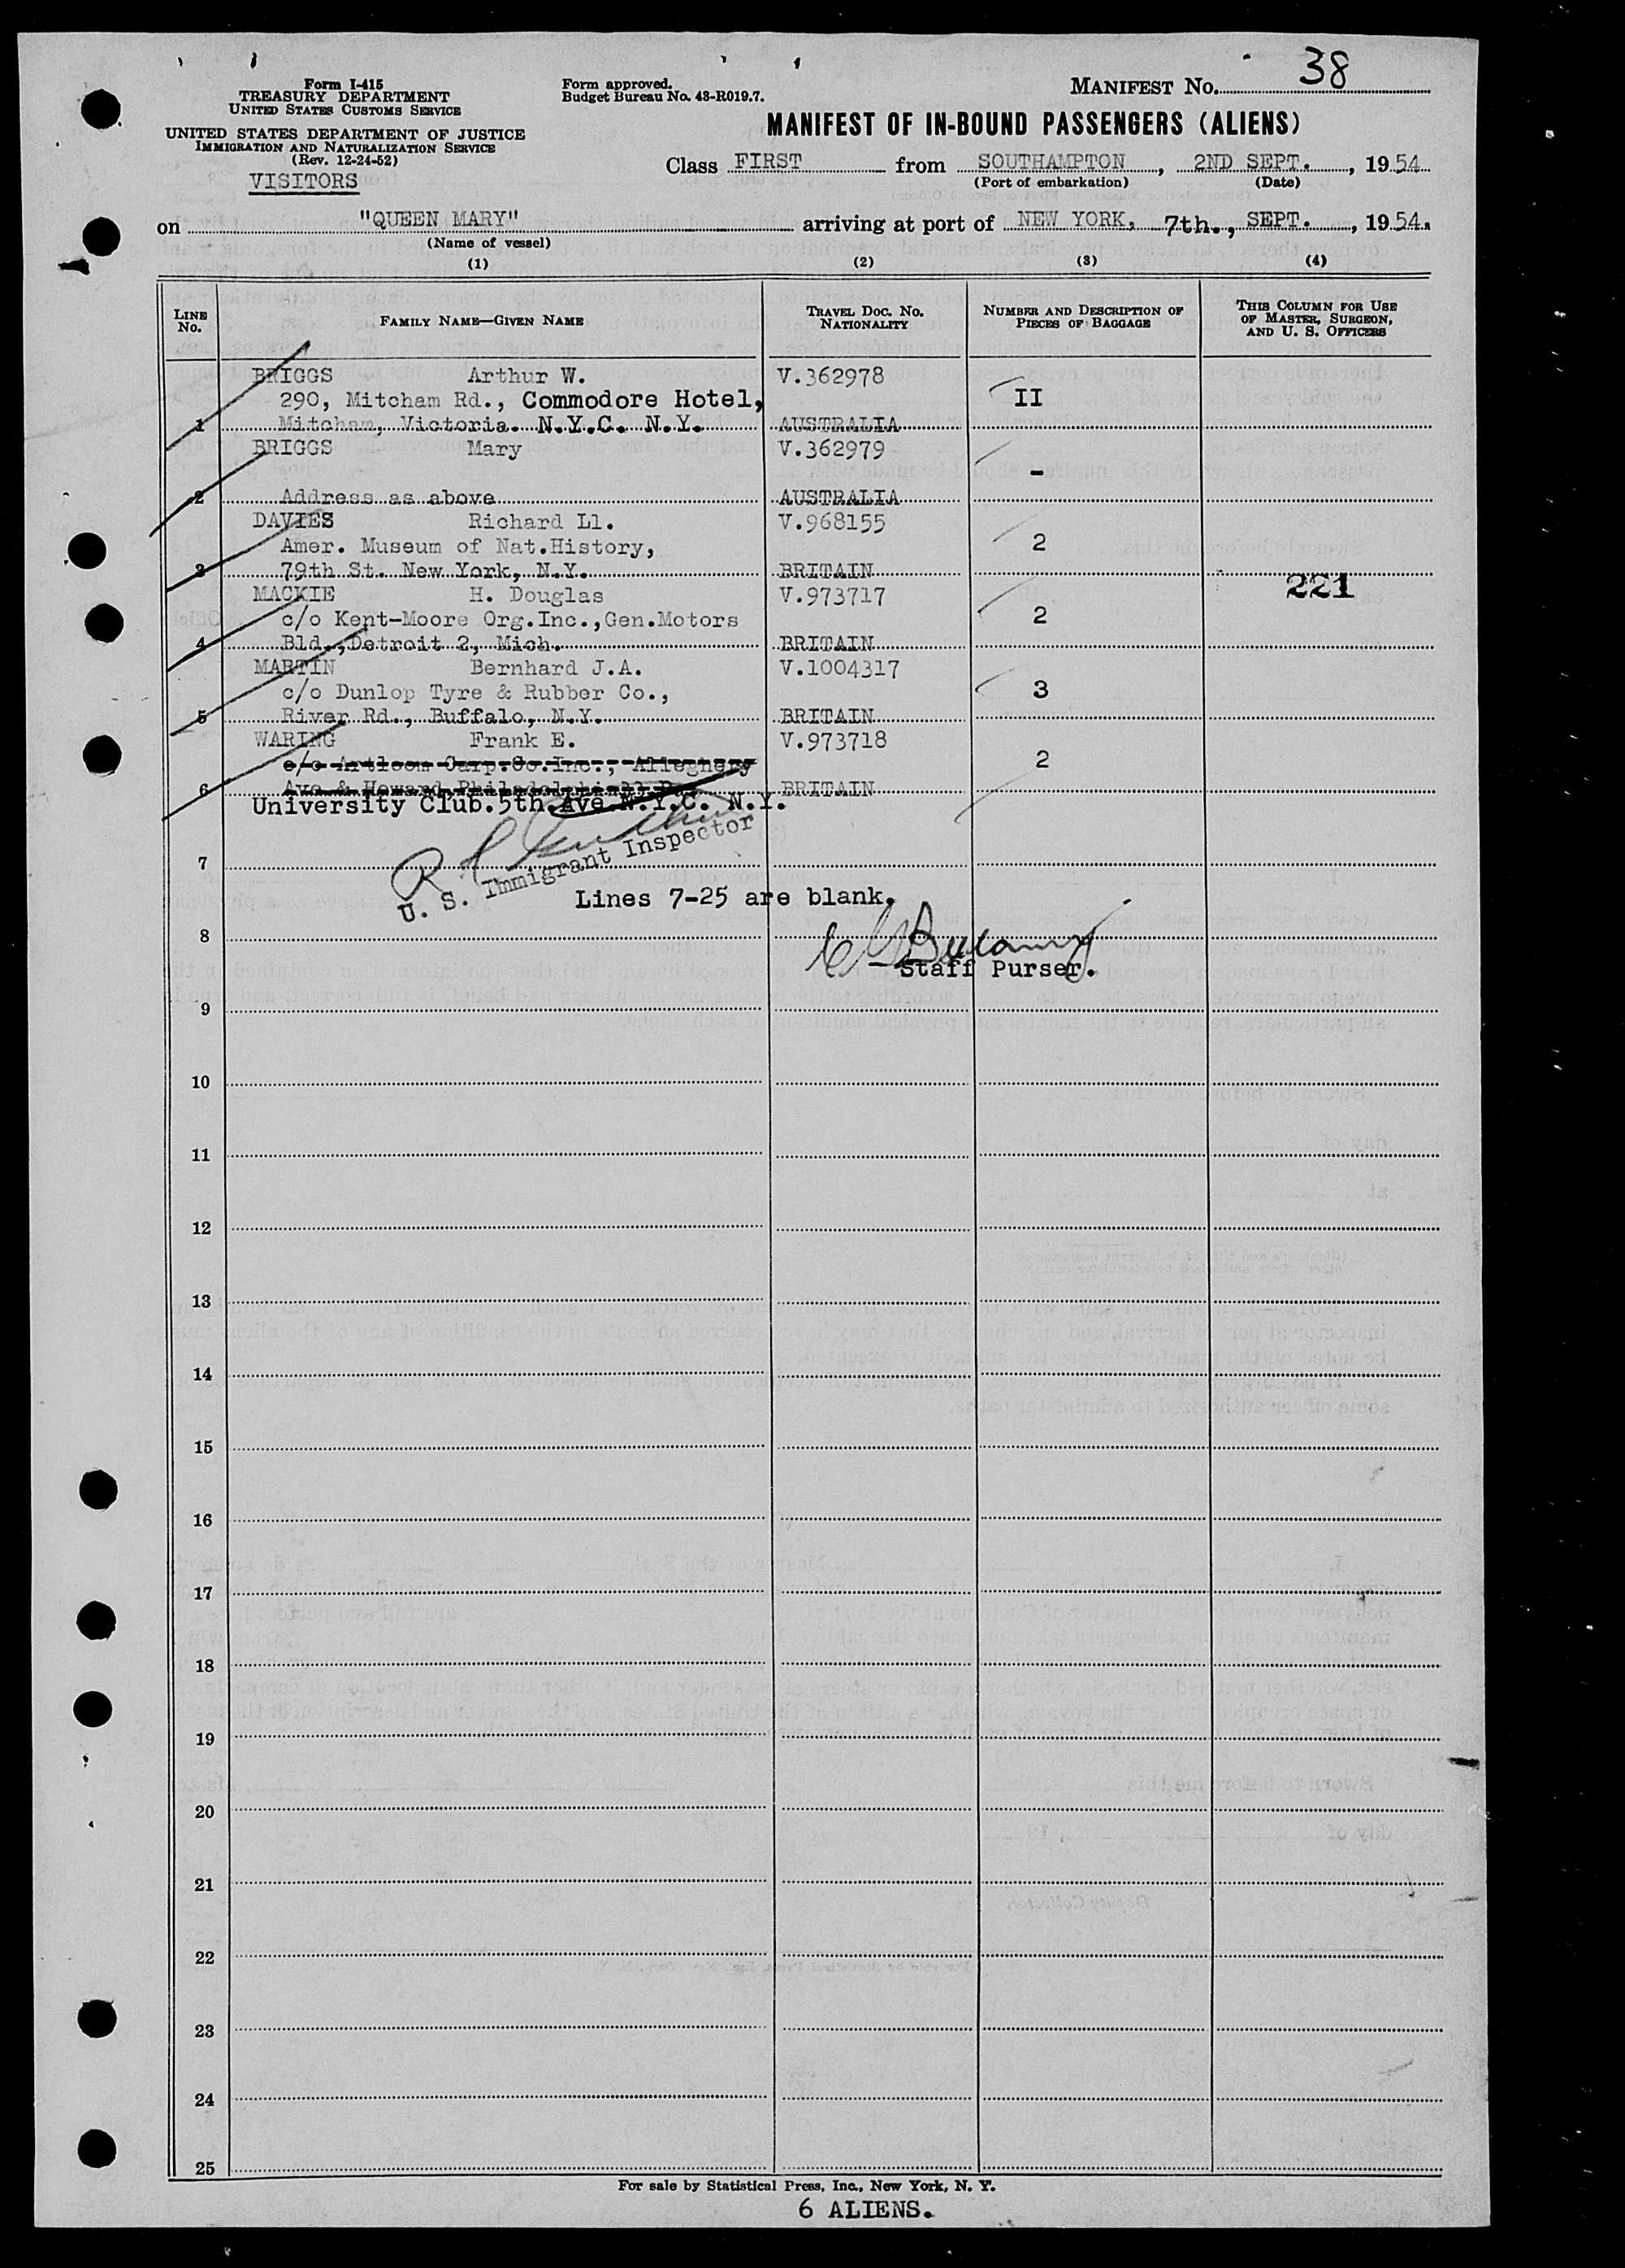 MANIFEST NO. 38
Form I-415
TREASURY DEPARTMENT
UNITED STATES CUSTOMS SERVICE
UNITED STATES DEPARTMENT OF JUSTICE
IMMIGRATION AND NATURALIZATION SERVICE
(Rev. 12-24-52)
VISITORS
Form approved.
Budget Bureau No. 43-R019.7.
MANIFEST OF IN-BOUND PASSENGERS (ALIENS)
Class FIRST from SOUTHAMPTON, 2ND SEPT., 1954
(Port of embarkation) (Date)
on "QUEEN MARY" arriving at port of NEW YORK, 7th., SEPT., 1954.
(Name of vessel)
(1) (2) (3) (4)
LINE No. FAMILY NAME—GIVEN NAME TRAVEL DOC. NO. NATIONALITY NUMBER AND DESCRIPTION OF PIECES OF BAGGAGE THIS COLUMN FOR USE OF MASTER, SURGEON, AND U. S. OFFICERS
BRIGGS Arthur W. V.362978
290, Mitcham Rd., Commodore Hotel, II
1 Mitcham, Victoria. N.Y.C. N.Y. AUSTRALIA
BRIGGS Mary V.362979
-
2 Address as above AUSTRALIA
DAVIES Richard Ll. V.968155
Amer. Museum of Nat.History, 2
3 79th St. New York, N.Y. BRITAIN
221
MACKIE H. Douglas V.973717
c/o Kent-Moore Org.Inc.,Gen.Motors 2
4 Bld.,Detroit 2, Mich. BRITAIN
MARTIN Bernhard J.A. V.1004317
c/o Dunlop Tyre & Rubber Co., 3
5 River Rd., Buffalo, N.Y. BRITAIN
WARING Frank E. V.973718
c/o Artloom Carp.Co.Inc., Allegheny 2
6 Ave & Howard, Philadelphia BRITAIN
University Club.5th.Ave.N.Y.C. N.Y.
U. S. Immigrant Inspector
7
Lines 7-25 are blank.
8
Staff Purser.
9
10
11
12
13
14
15
16
17
18
19
20
21
22
23
24
25
For sale by Statistical Press, Inc., New York, N. Y.
6 ALIENS.